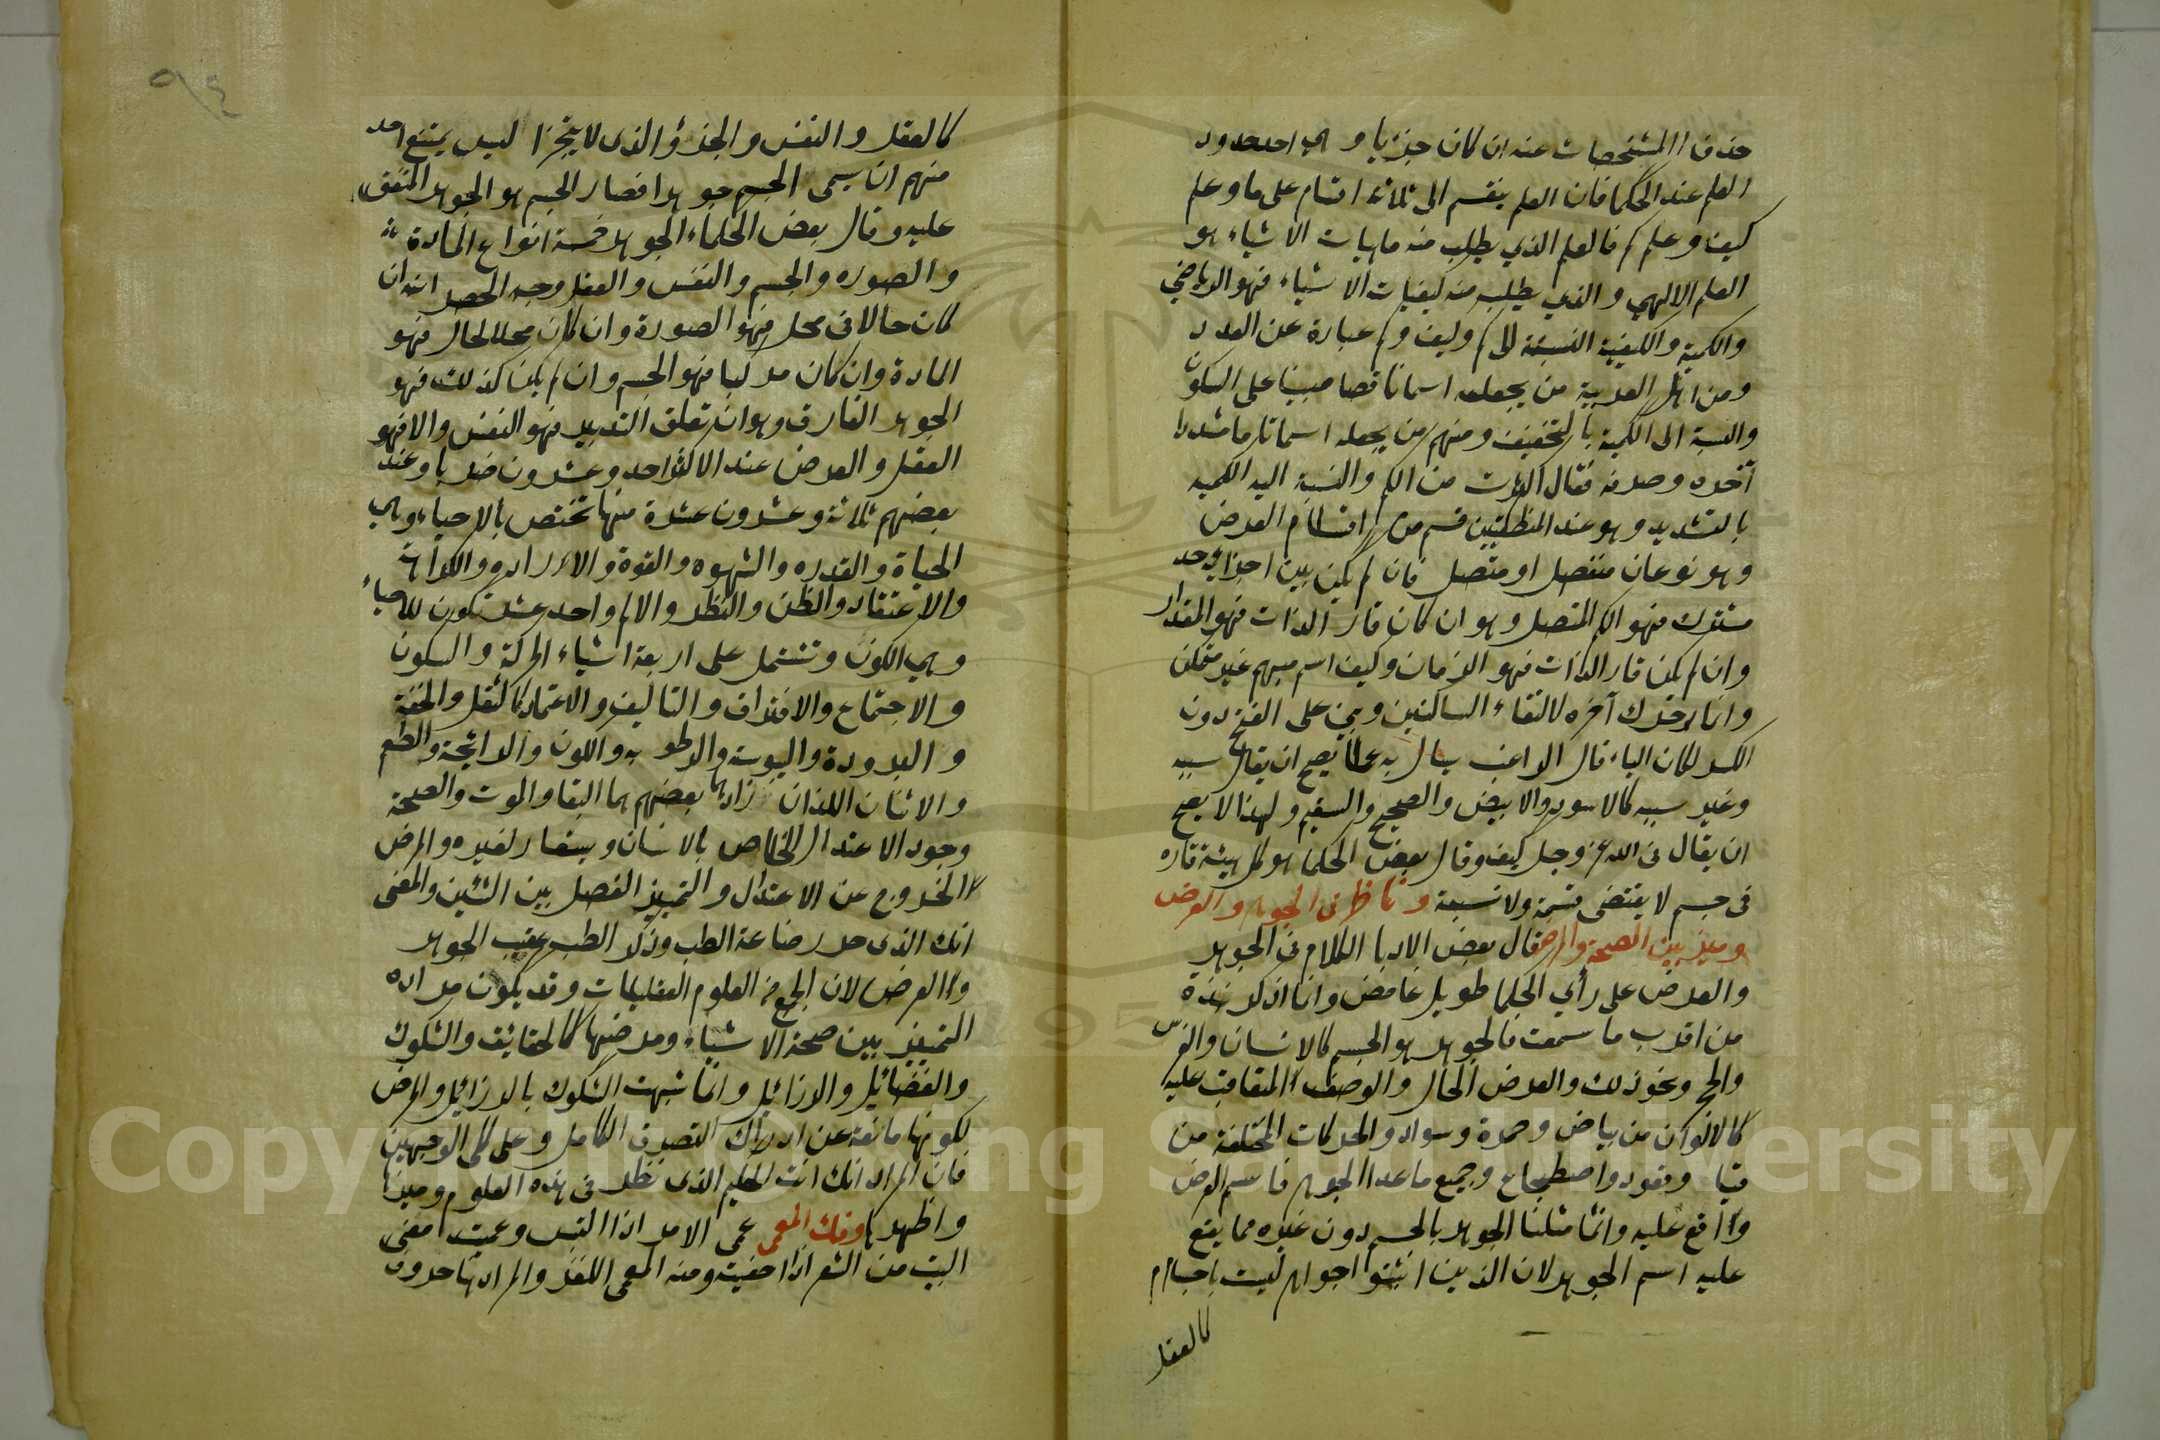 حذف المشخصات عنه ان كان جزئيا وهي احد حدود
العلم عند الحكما فان العلم ينقسم الى ثلاثة اقسام على ما وعلم
كيف وعلم كم فالعلم الذي يطلب منه ماهيات الاشياء هو
العلم الالهي والذي يطلب منه كيفيات الاشياء فهو الرياضي
والكمية والكيفية النسبة الى كم وكيف وكم عبارة عن العدد
ومن اهل العربية من يجعله اسما ناقصا مبنيا على السكون
والنسبة الى الكمية بالتخفيف ومنهم من يجعله اسما تاما مشددا
آخره وصرفه فقال اكثرت من الكم والنسبة اليه الكميه
بالتشديد وهو عند المنطقيين قسم من اقسام العرض
وهو نوعان منفصل او متصل فان لم يكن بين اجزائه حد
مشترك فهو الكم المنفصل وهو ان كان قار الذات فهو المقدار
وان لم يكن قار الذات فهو الزمان وكيف اسم مبهم غير متمكن
وانما حرك آخره لالتقاء الساكنين وبني على الفتح دون
الكسر لمكان الياء قال الراغب يسال به عما يصح ان يقال شبيه
وغير شبيه كالاسود والابيض والصحيح والسقيم ولهذا لا يصح
ان يقال في الله عز وجل كيف وقال بعض الحكما هو كل هيئة قاره
في جسم لا يقتضي قسمة ولا نسبة وناظر في الجوهر والعرض
وميز بين الصحة والمرض قال بعض الادبا الكلام في الجوهر
والعرض على رأي الحكما طويل غامض وانا اذكر نبذة
من اقرب ما سمعت فالجوهر هو الجسم كالانسان والفرس
والحجر ونحو ذلك والعرض الحال والوصف المتعاقب عليه
كالالوان من بياض وحمرة وسواد والحركات المختلفة من
قيام وقعود واضطجاع وجميع ما عدا الجوهر فاسم العرض
واقع عليه وانما مثلنا الجوهر بالجسم دون غيره مما يقع
عليه اسم الجوهر لان الذين اثبتوا جواهر ليست باجسام
كالعقل
٩٤
كالعقل والنفس والجزؤ الذى لا يتجزا ليس يمتنع احد
منهم ان يسمى الجسم جوهرا فصار الجسم هو الجوهر المتفق
عليه وقال بعض الحكماء الجوهر خمسة انواع المادة
والصوره والجسم والنفس والعقل وجه الحصر انه ان
كان حالا في محل فهو الصورة وان كان محلا لحال فهو
المادة وان كان مركبا فهو الجسم وان لم يكن كذلك فهو
الجوهر المفارق وهو ان تعلق التدبير فهو النفس والا فهو
العقل والعرض عند الاكثر احد وعشرون ضربا وعند
بعضهم ثلاثة وعشرون عشرة منها تختص بالاحياء وهي
الحياة والقدره والشهوه والقوة والاراده والكراهة
والاعتقاد والظن والنظر والالم واحد عشر تكون للاحياء
وهي الكون وتشتمل على اربعة اشياء الحركة والسكون
والاجتماع والافتراق والتاليف والاعتماد كالثقل والخفة
والبرودة واليبوسة والرطوبه واللون والرائحة والطعم
والاثنان اللذان زادهما بعضهم هما البقا والموت والصحة
وجود الاعتدال الخاص بالانسان ويستعار لغيره والمرض
الخروج عن الاعتدال والتمييز الفصل بين الشئين والمعنى
انك الذى حرر صناعة الطب وذكر الطب عقيب الجوهر
والعرض لان الجميع من العلوم العقليات وقد يكون مراده
التمييز بين صحة الاشياء ومرضها كالحقائق والشكوك
والفضائل والرذائل وانما شبهت الشكوك بالرذائل والمرض
لكونها مانعة عن ادراك التصرف الكامل وعلى كلى الوجهين
فان المراد انك انت الحكيم الذى نظر في هذه العلوم وميزها
واظهرها وفك المعمى عمي الامر اذا التبس وعميت معنى
البيت من الشعر اذا اخفيته ومنه المعمى اللغز والمراد بها حدود
Copyright © King Saud University
1957